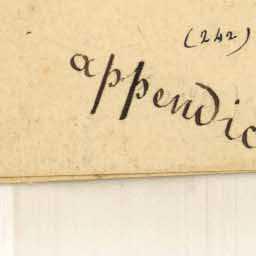 (242)
appendic